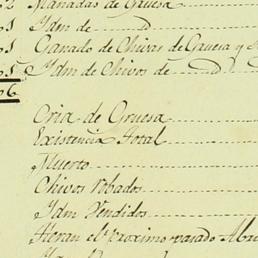 2 Manadas de Gruesa
1 Ydm de d
1 Ganado de Chivas de Gruesa y
5 Ydm de Chivos de d
06
Cria de Gruesa
Existencia Total
Muerto
Chivos Robados
Ydm Vendidos
Heran el proximo pasado